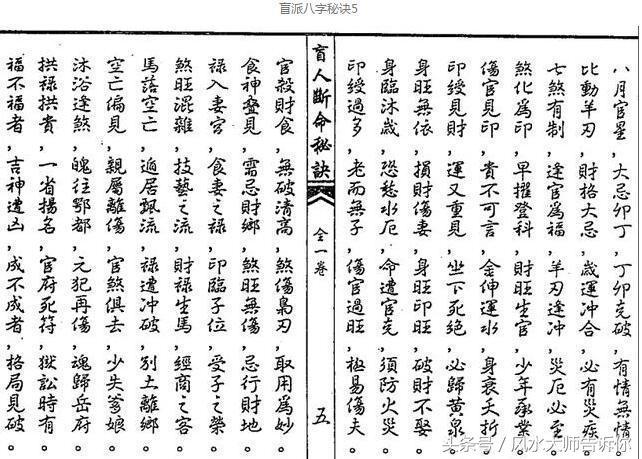 盲派八字秘诀5
八月官星，大忌卯丁，丁卯克破，有情無情。
比動羊刃，財格大忌，歲運冲合，必有災疾。
七煞有制，逢官爲福，羊刃逢冲，災厄必至。
煞化爲印，早擢登科，財旺生官，少年承業。
傷官見印，貴不可言，金伸運水，身衰夭折。
印綬見財，運又重見，坐下死絕，必歸黃泉。
身旺無依，損財傷妻，身旺印旺，破財不娶。
身臨沐歲，恐愁水厄，命遭官克，須防火災。
印綬過多，老而無子，傷官過旺，極易傷夫。
盲人斷命秘訣 全一卷 五
官殺財食，無破清高，煞傷梟刃，取用爲妙。
食神疊見，需忌財鄉，煞旺無傷，忌行財地。
祿入妻宮，食妻之祿，印臨子位，受子之榮。
煞旺混雜，技藝之流，財祿生馬，經商之客。
馬落空亡，遁居飄流，祿遭冲破，別土離鄉。
空亡偏見，親屬離傷，官煞俱去，少失爹娘。
沐浴逢煞，魄往鄂都，元犯再傷，魂歸岳府。
拱祿拱貴，一省揚名，官府死符，獄訟時有。
福不福者，吉神遭凶，成不成者，格局見破。
头条号／风水大师告诉你